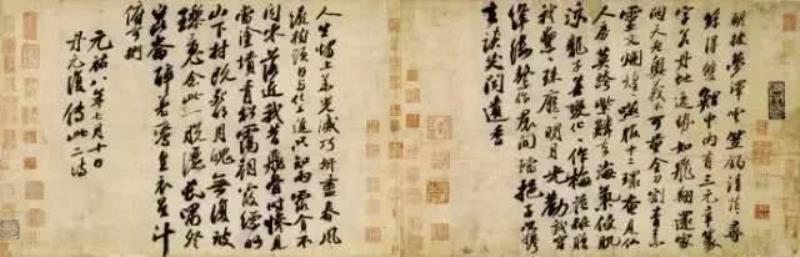 朝披夢澤雲笠釣清茫茫尋
絲得雙鯉中有三元章篆
字若丹蛇逸勢如飛翔還家
問天老奧義不可量金刀割青素
靈文爛煌煌咽服十二環奄見仙
人房莫跨紫鱗去海氣侵肌
涼龍子善變化化作梅花妝贈
我纍纍珠靡靡明月光勸我穿
絳縷繫作裙間襠挹子以攜
去談笑聞遺香
人生燭上華光滅巧妍盡春風
繞樹頭日與化工進只知雨露貪不
聞零落近我昔飛骨時慘見
當塗墳青松靄朝霞縹緲
山下村既死明月魄無復玻
璃魂念此一脫灑長嘯登
崑崙醉著鸞皇衣星斗
俯可捫
元祐八年七月十日
丹元復傳此二詩